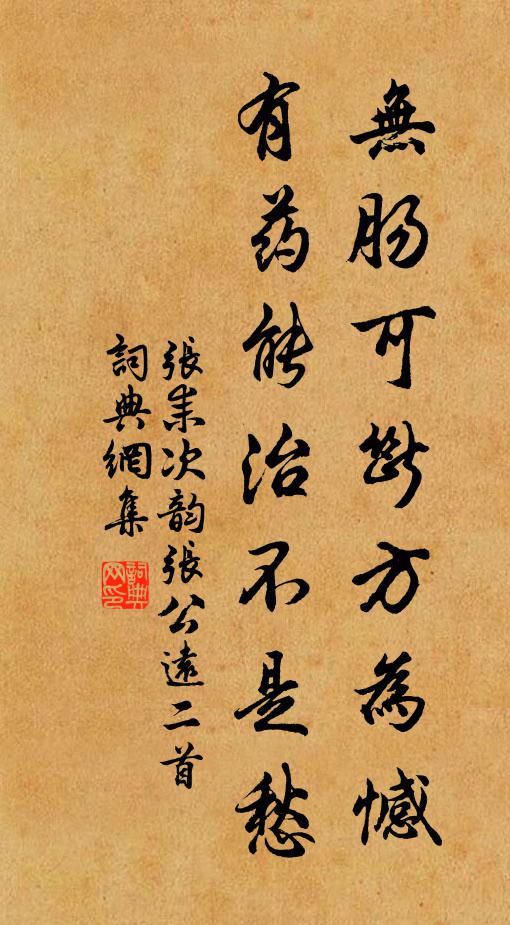 無肠可斷方為憾
有药能治不是愁
張耒次韵張公遠二首
詞典網集
詞典网印